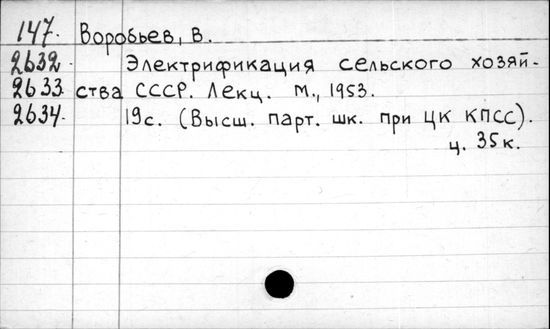 147. Воробьев, В.
2632. Электрификация сельского хозяй-
2633. ства СССР. Лекц. М., 1953.
2634. 19с. (Высш. парт. шк. при ЦК КПСС).
ц. 35к.